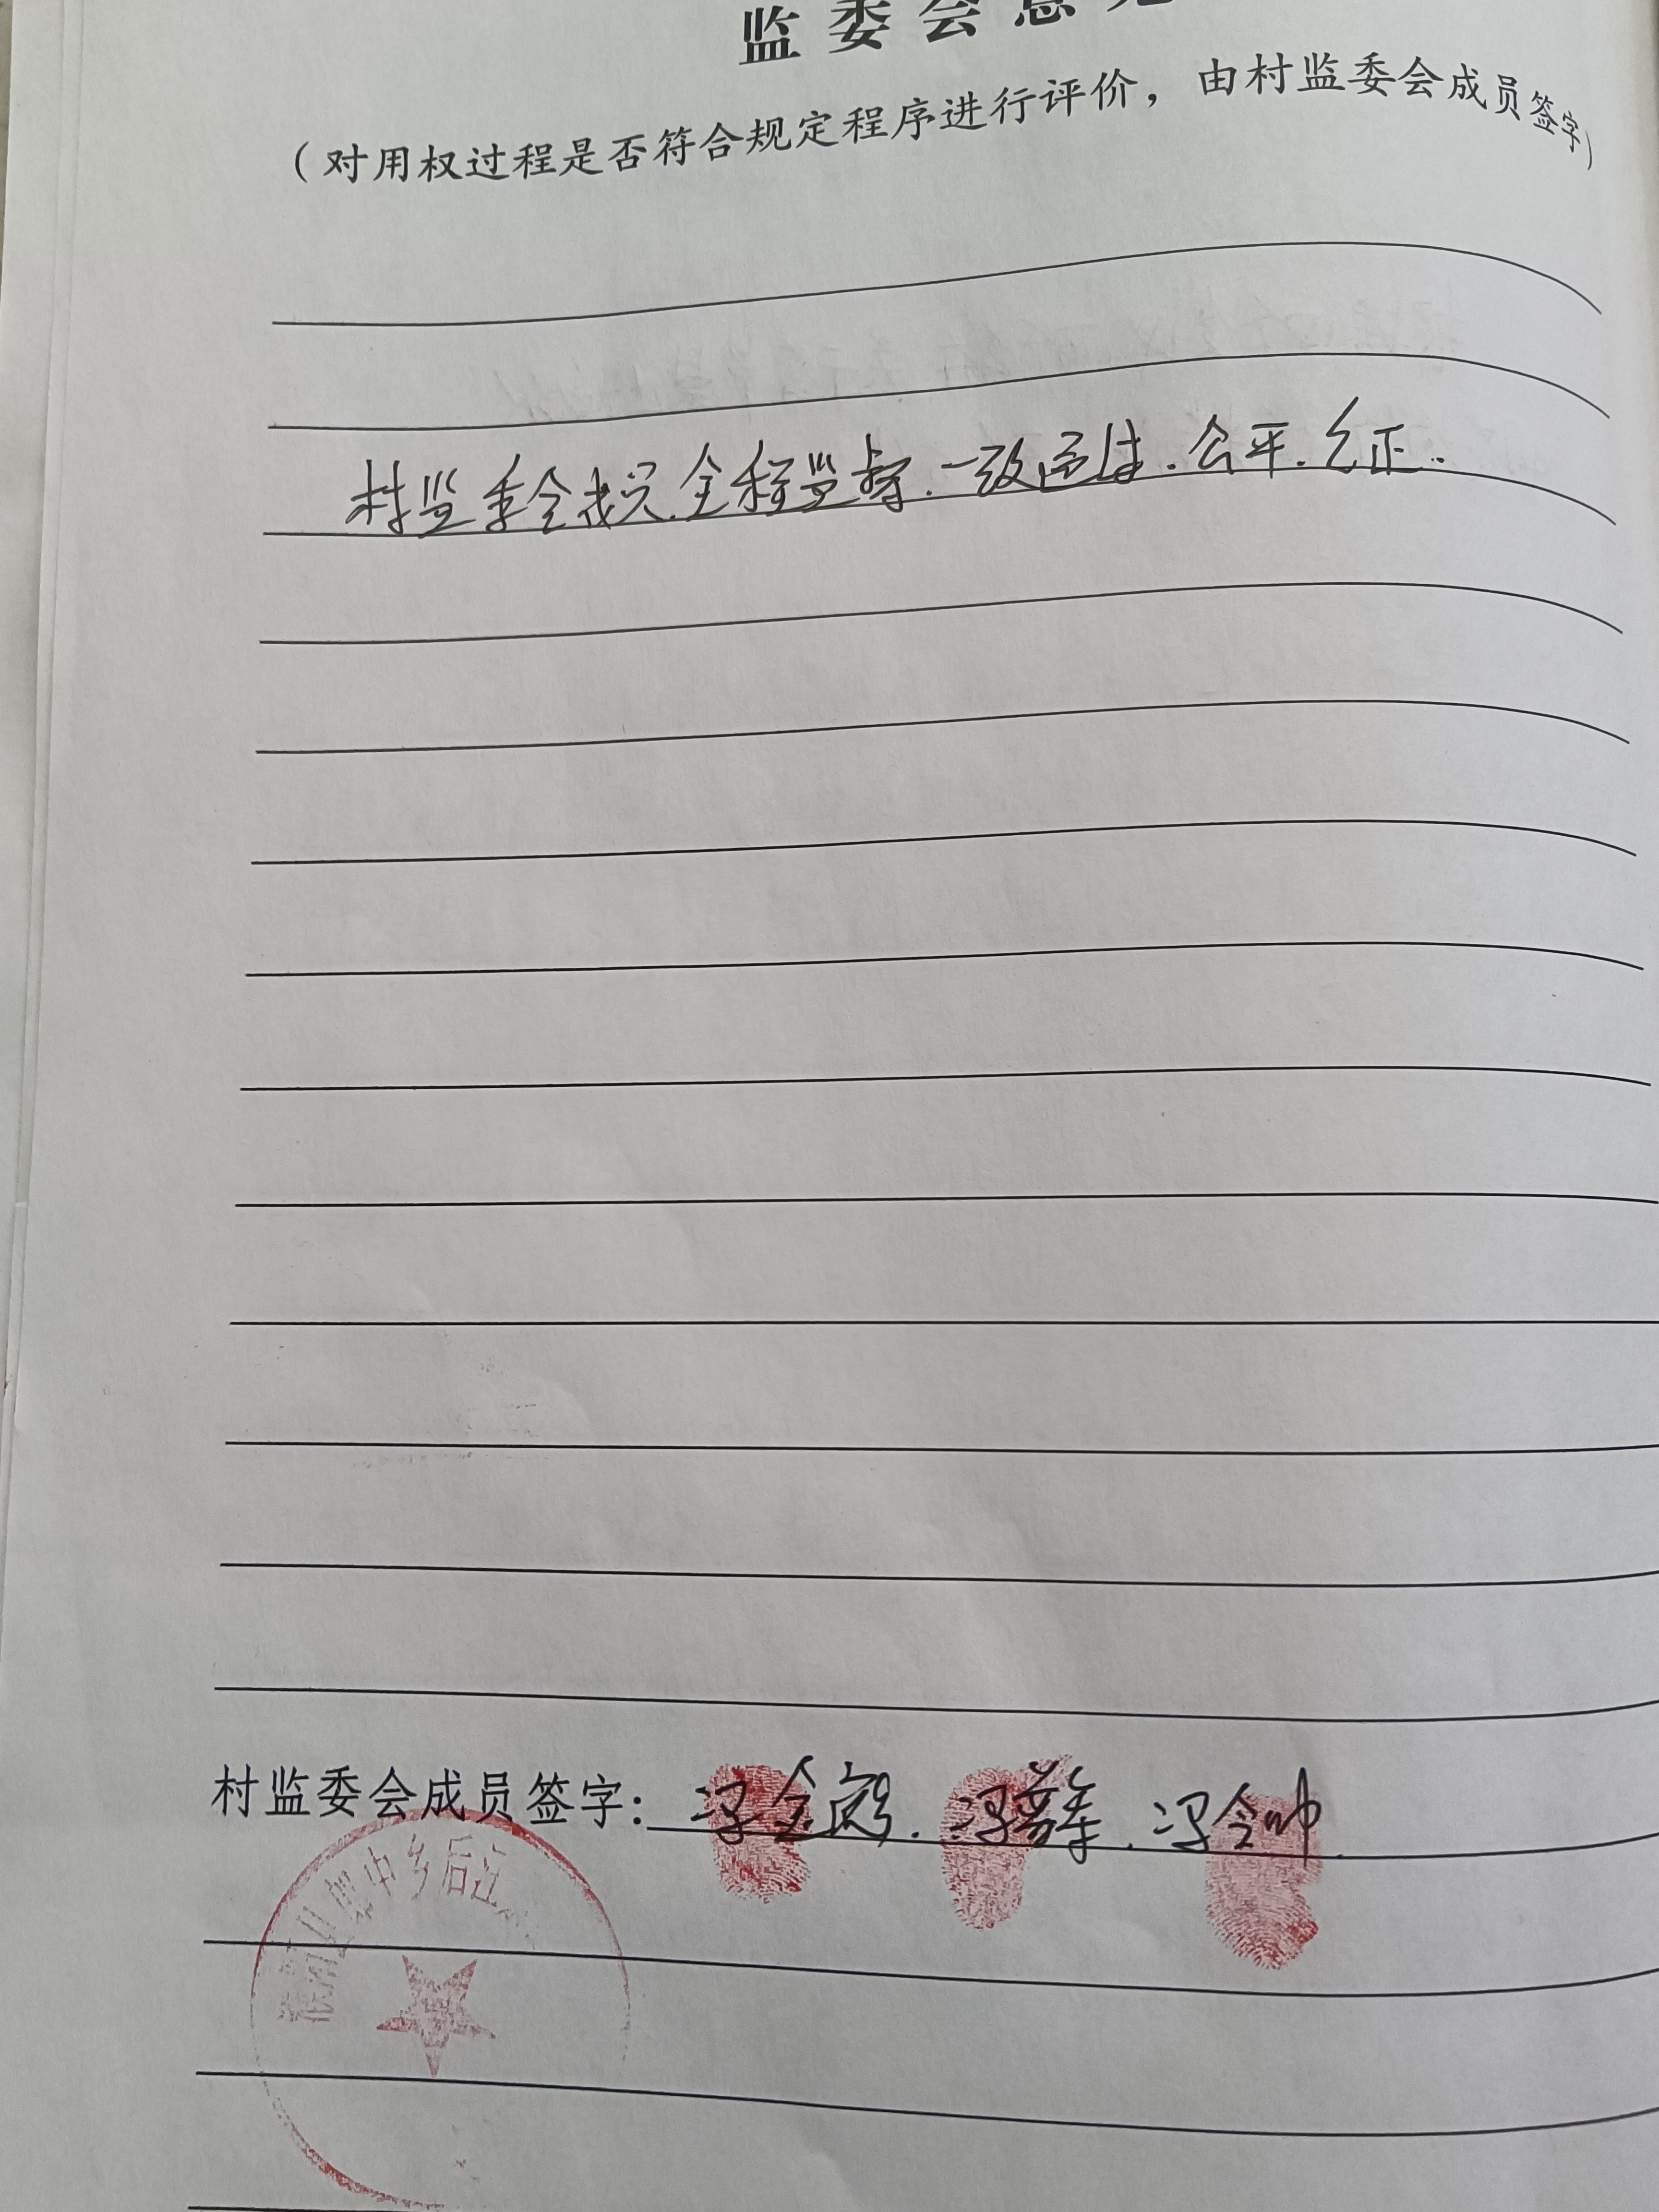 监委会意见
（对用权过程是否符合规定程序进行评价，由村监委会成员签字）
村监委会成员全程监督.一致通过.公平.公正.
村监委会成员签字：冯金 冯 冯会帅
中乡后